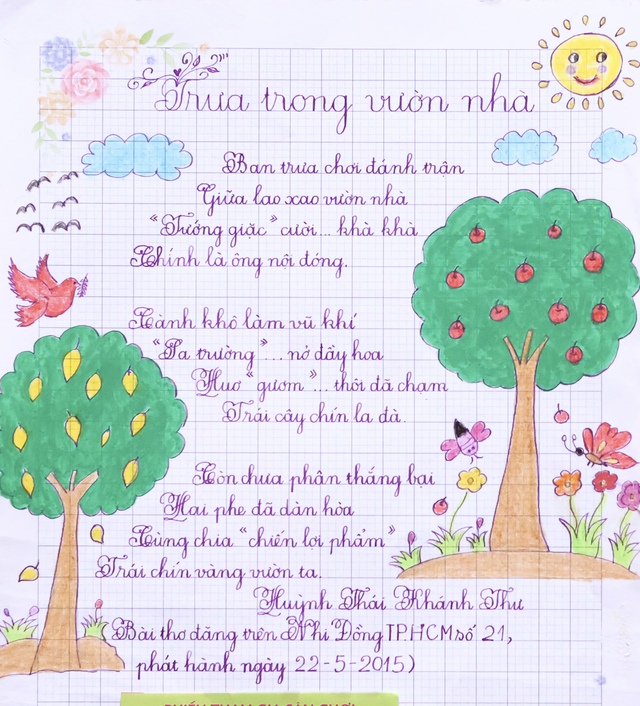 Trưa trong vườn nhà
Ban trưa chơi đánh trận
Giữa lao xao vườn nhà
"Tướng giặc" cười... khà khà
Chính là ông nội đóng.
Cành khô làm vũ khí
"Sa trường"... nở đầy hoa
Huơ "gươm"... thôi đã chạm
Trái cây chín la đà.
Còn chưa phân thắng bại
Hai phe đã dàn hòa
Cùng chia "chiến lợi phẩm"
Trái chín vàng vườn ta.
Huỳnh Thái Khánh Thư
Bài thơ đăng trên Nhi Đồng TP.HCM số 21,
phát hành ngày 22-5-2015)